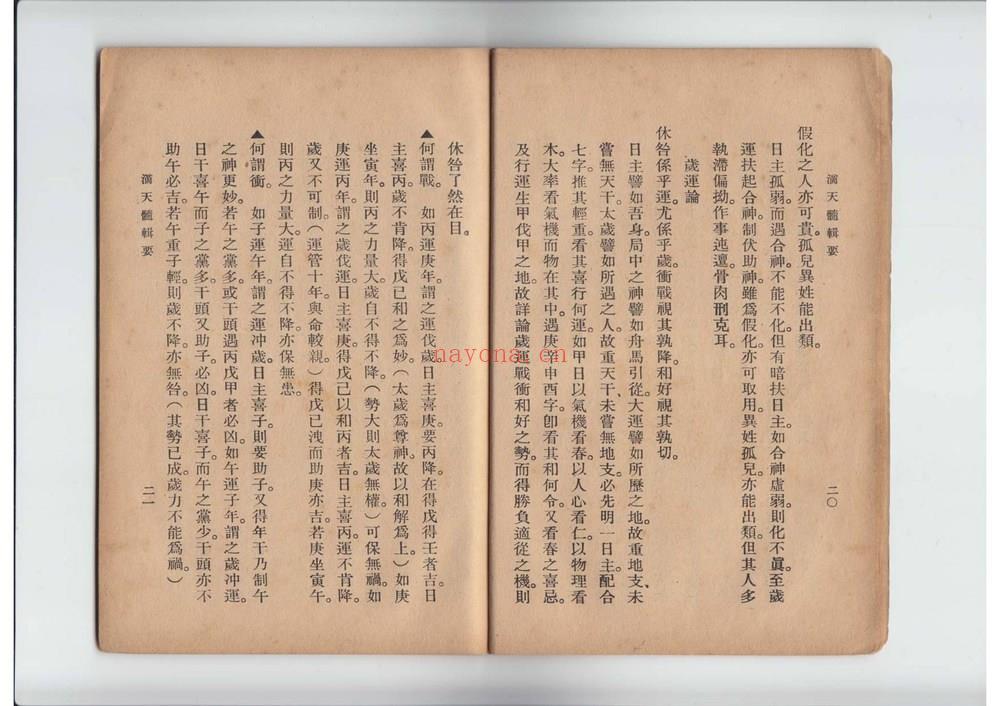 滴天髓輯要
二〇
假化之人亦可貴。孤兒異姓能出類。
日主孤弱。而遇合神。不能不化。但有暗扶日主。如合神虛弱。則化不眞。至歲
運扶起合神。制伏助神。雖爲假化。亦可取用。異姓孤兒。亦能出類。但其人多
執滯偏拗。作事迍邅。骨肉刑克耳。
歲運論
休咎係乎運。尤係乎歲。衝戰視其孰降。和好視其孰切。
日主譬如吾身。局中之神。譬如舟馬引從。大運譬如所歷之地。故重地支、未
嘗無天干。太歲譬如所遇之人。故重天干、未嘗無地支。必先明一日主。配合
七字。推其輕重。看其喜行何運。如甲日以氣機看春。以人心看仁。以物理看
木。大率看氣機而物在其中。遇庚辛申酉字。卽看其和何令。又看春之喜忌。
及行運生甲伐甲之地。故詳論歲運戰衝和好之勢。而得勝負適從之機。則
休咎了然在目。
▲何謂戰。 如丙運庚年。謂之運伐歲。日主喜庚。要丙降。在得戊得壬者吉。日
主喜丙。歲不肯降。得戊己和之爲妙。(太歲爲尊神。故以和解爲上。)如庚
坐寅年。則丙之力量大。歲自不得不降。(勢大則太歲無權)可保無禍。如
庚運丙年。謂之歲伐運。日主喜庚。得戊己以和丙者吉。日主喜丙。運不肯降。
歲又不可制。(運管十年。與命較親。)得戊己洩而助庚亦吉。若庚坐寅午。
則丙之力量大。運自不得不降。亦保無患。
▲何謂衝。 如子運午年。謂之運沖歲。日主喜子。則要助子。又得年干乃制午
之神更妙。若午之黨多。或干頭遇丙戊甲者必凶。如午運子年。謂之歲沖運。
日干喜午而子之黨多。干頭又助子。必凶。日干喜子。而午之黨少。干頭亦不
助午必吉。若午重子輕。則歲不降。亦無咎。(其勢已成。歲力不能爲禍。)
滴天髓輯要
二一
nayona.cn